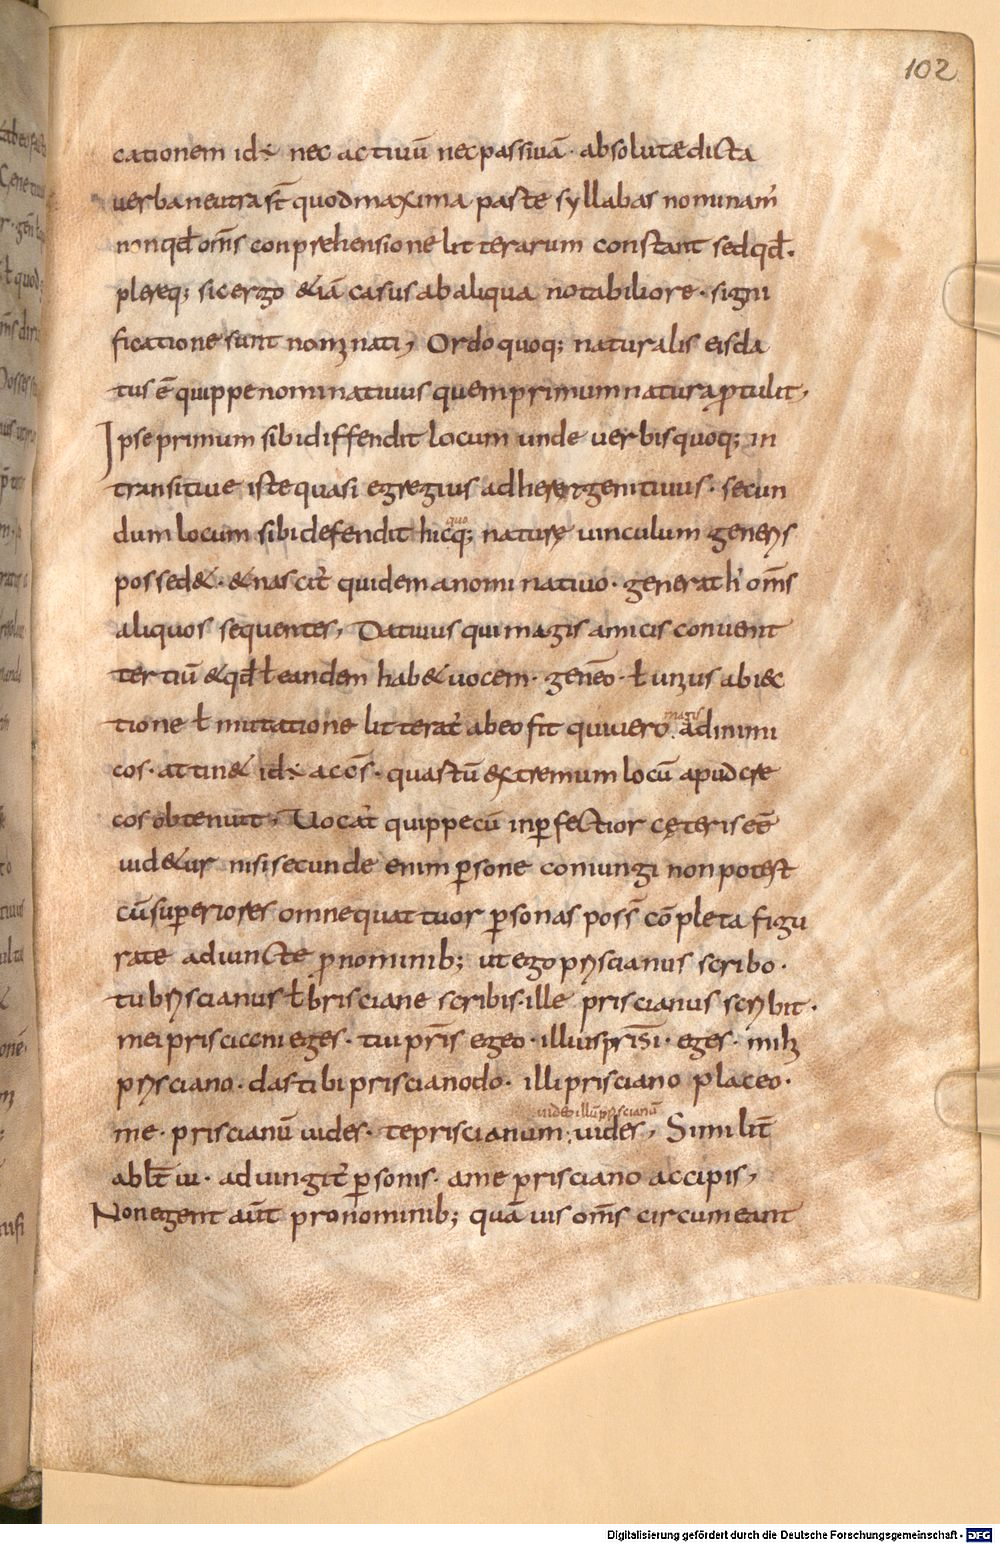 102
cationem id÷ nec actiuū nec passiuā· absolutę dicta
uerba neutra st̄ quod maxima parte syllabas nominam᷒
non qđ om̄s conprehensione litterarum constant sed qđ·
plereq; sic ergo &iā casus ab aliqua notabiliore· signi
ficatione sunt nominati, Ordo quoq; naturalis eis da
tus ē quippe nominatiuus quem primum natura ꝓtulit,
Ipse primum sibi diffendit locum unde uerbis quoq; in
transitiue iste quasi egregius adheret genitiuus· secun
quo
dum locum sibi defendit hicq; naturę uinculum generis
possed&· & nascit᷒ quidem a nominatiuo· generat h̓ om̄s
aliquos sequentes, Datiuus qui magis amicis conuenit
tertiū & qđ ł eandem hab& uocem· geneō· ł unius abiec
tione ł mutatione litterat᷒ ab eo fit qui uero
magis
ad inimi
cos· attin& id÷ acōs· quastū extremum locū apud cre
cos obtenuit, Uocat᷒ quippe cū inꝑfectior cęteris eē̄
uid&ur nisi secunde enim ꝑsone coniungi non potest
cū superiores omne quattuor ꝑsonas poss̄ cō pleta figu
rate adiuncte ꝓnominib; ut ego priscianus scribo·
tu briscianus ł brisciane scribis· ille priscianus scribit·
mei prisciani eges· tui prīs egeo· illius prisi· eges· mihi
prisciano· das tibi prisciano do· illi prisciano placeo·
uideo illū priscianū
me· priscianū uides· te priscianum uides, Similit̄
abłt̄ iu· adiungit᷒ ꝑsonis· a me prisciano accipis,
Non egent aūt pronominib; quā uis om̄s circumeant
Digitalisierung gefördert durch die Deutsche Forschungsgemeinschaft - DFG